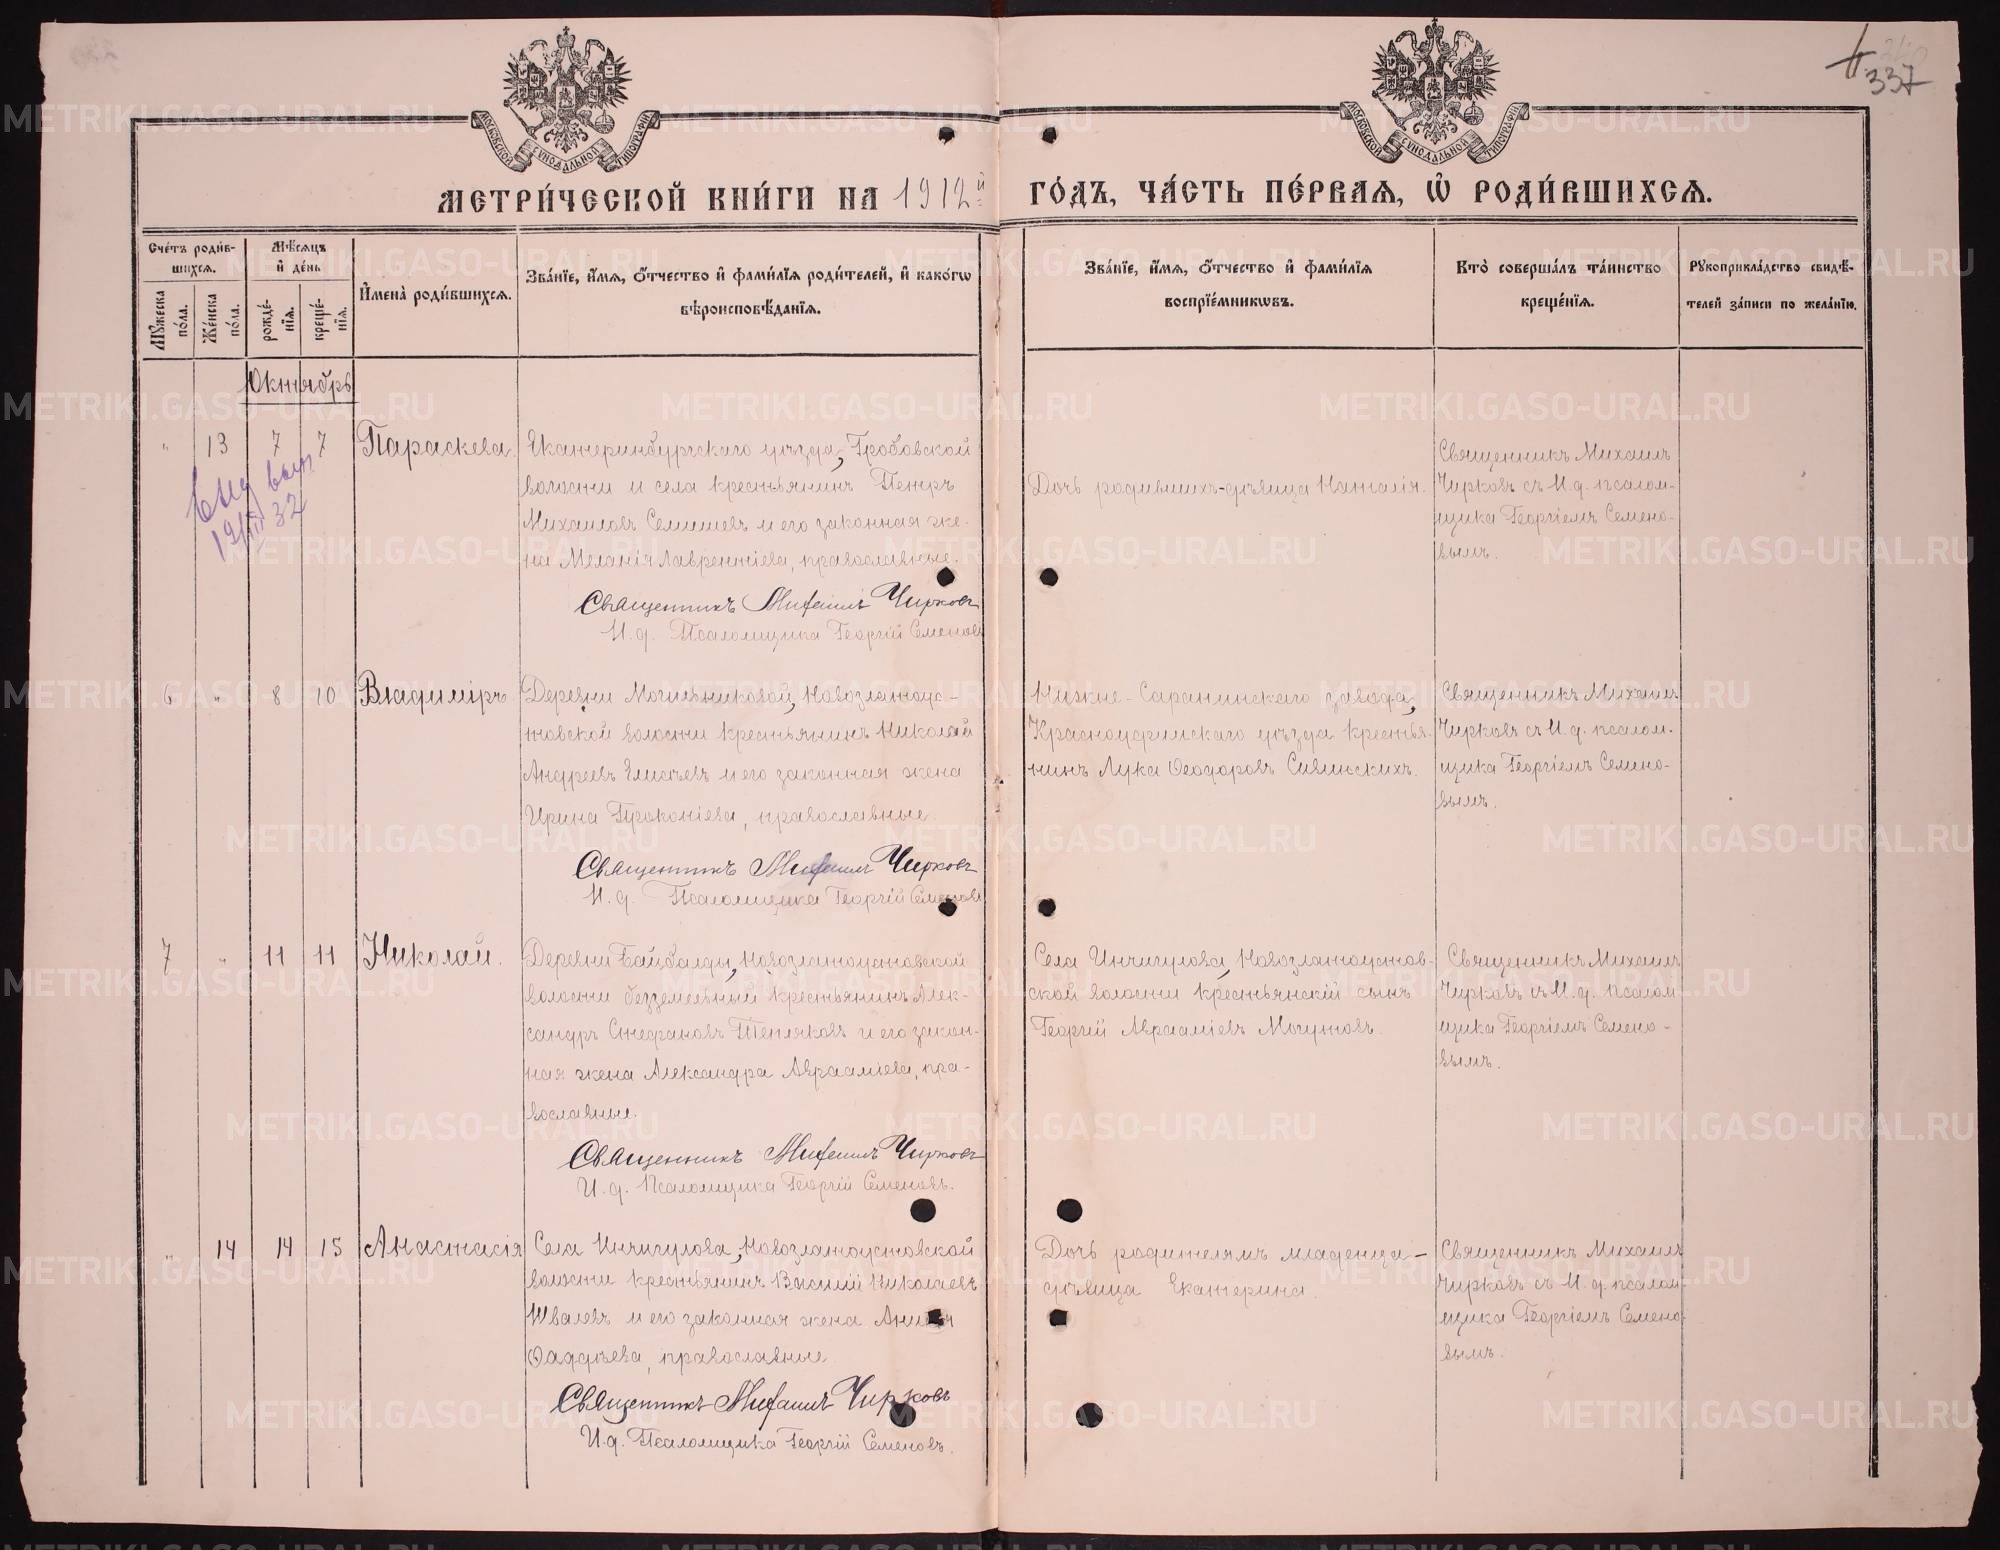 337
МОСКОВСКОЙ СУНОДАЛЬНОЙ ТИПОГРАФІИ
МОСКОВСКОЙ СУНОДАЛЬНОЙ ТИПОГРАФІИ
МЕТРИ́ЧЕСКОЙ КНИ́ГИ НА 1912й ГО́ДЪ, ЧА́СТЬ ПЕ́РВАѦ, Ѽ РОДИ́ВШИХСѦ.
Сче́тъ роди́в-
шихсѧ.
Мꙋжеска по́ла.
Же́нска по́ла.
Мѣ́сѧцъ
и҆ де́нь
рожде́-
нїѧ.
креще́-
нїѧ.
И҆мена̀ роди́вшихсѧ.
Зва́нїе, и҆́мѧ, ѻ҆́тчество и҆ фами́лїѧ роди́телей, и҆ како́гѡ
вѣроисповѣ́данїѧ.
Зва́нїе, и҆́мѧ, ѻ҆́тчество и҆ фами́лїѧ
воспрїе́мникѡвъ.
Кто̀ соверша́лъ та́инство
креще́нїѧ.
Рꙋкоприкла́дство свидѣ́-
телей за́писи по жела́нїю.
Октябрь
" 13 7 7 Параскева.
Екатеринбургскаго уѣзда, Гробовской
волости и села крестьянинъ Петръ
Михаиловъ Семишевъ и его законная же-
на Меланія Лаврентіева, православные.
Священникъ Михаилъ Чирковъ
И. д. Псаломщика Георгій Семеновъ
Дочь родившихъ-дѣвица Наталія.
Священникъ Михаилъ
Чирковъ съ И. д. псалом-
щика Георгіемъ Семено-
вымъ.
19/III 32
6 " 8 10 Владиміръ
Деревни Могильниковой, Новозлатоус-
товской волости крестьянинъ Николай
Андреевъ Елисѣевъ и его законная жена
Ирина Прокопіева, православные
Священникъ Михаилъ Чирковъ
И. д. Псаломщика Георгій Семеновъ
Нижне-Саранинскаго завода,
Красноуфимскаго уѣзда крестья-
нинъ Лука Ѳеодоровъ Сивинскихъ.
Священникъ Михаилъ
Чирковъ съ И. д. псалом-
щика Георгіемъ Семено-
вымъ.
7 " 11 11 Николай.
Деревни Байбалды, Новозлатоустовской
волости безземельный крестьянинъ Алек-
сандръ Стефановъ Тепляковъ и его закон-
ная жена Александра Авраамiева, пра-
вославные.
Священникъ Михаилъ Чирковъ
И. д. Псаломщика Георгій Семеновъ.
Села Инчигулова, Новозлатоустов-
ской волости крестьянскій сынъ
Георгій Авраамiевъ Могутовъ.
Священникъ Михаилъ
Чирковъ съ И. д. псалом
щика Георгіемъ Семено-
вымъ.
" 14 14 15 Анастасія
Села Инчигулова, Новозлатоустовской
волости крестьянинъ Василій Николаевъ
Швалевъ и его законная жена
Ѳаддѣева, православные
Священникъ Михаилъ Чирковъ
И. д. Псаломщика Георгій Семеновъ.
Дочь родителямъ младенца-
дѣвица Екатерина.
Священникъ Михаилъ
Чирковъ съ И. д. псалом-
щика Георгіемъ Семено-
вымъ.
METRIKI.GASO-URAL.RU